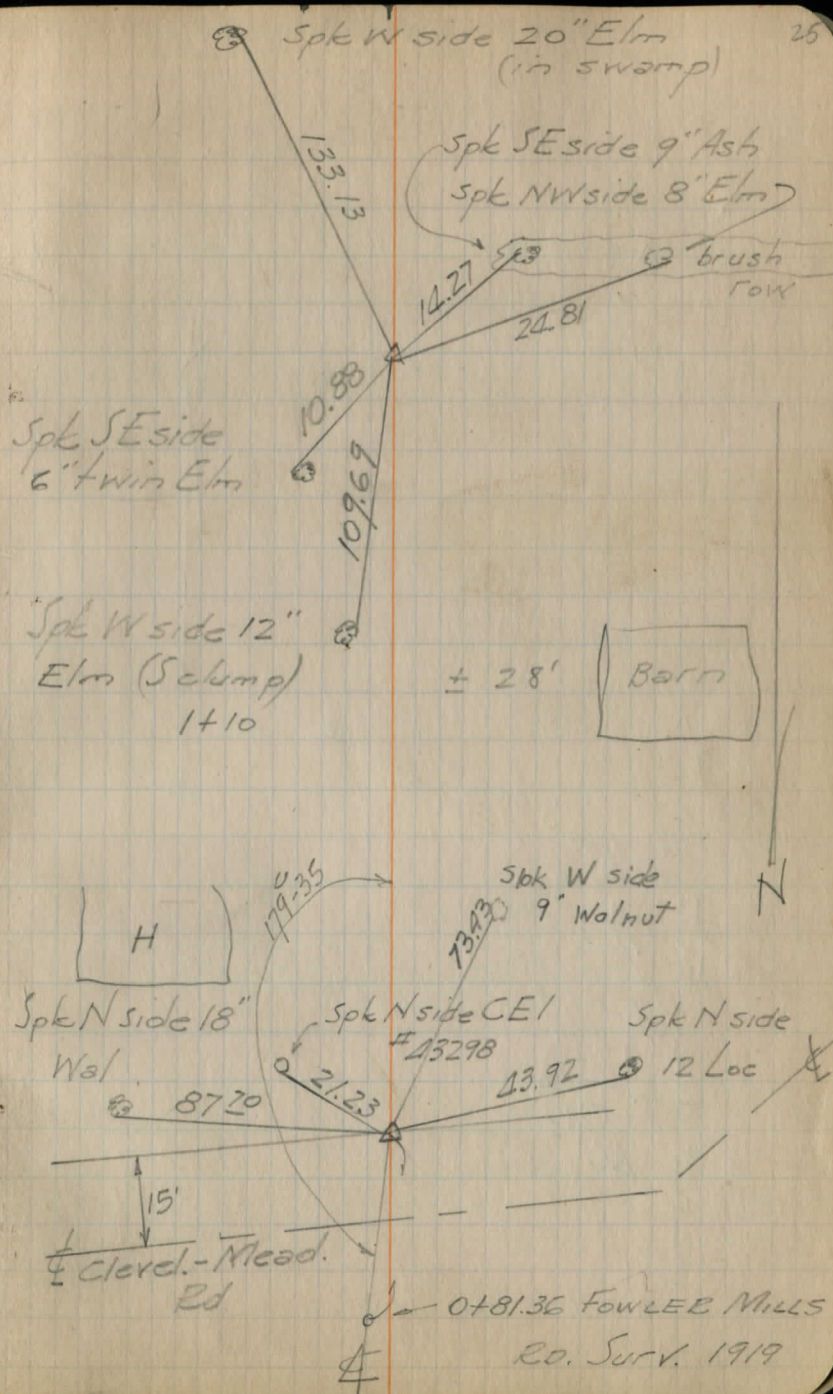 25
Spk W side 20" Elm
(in swamp)
133.13
Spk SE side 9" Ash
Spk NW side 8" Elm
brush
row
14.27
24.81
10.88
Spk SE side
6" twin Elm
109.69
Spk W side 12"
Elm (S clump)
1+10
± 28'
Barn
N
179-35
Spk W side
9" Walnut
73.43
H
Spk N side 18"
Wal
87 70
Spk N side CEI
#43298
21.23
Spk N side
12 Loc
43.92
15'
℄ Clevel.-Mead.
Rd
0+81.36 FOWLER MILLS
RD. Surv. 1919
℄